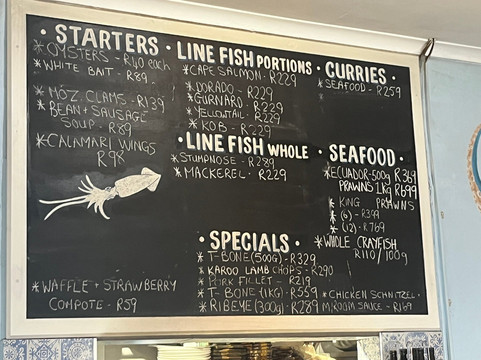 · STARTERS ·
* OYSTERS - R40 each
* WHITE BAIT - R89.
* MOZ. CLAMS - R139
* BEAN + SAUSAGE
SOUP - R89
* CALAMARI WINGS
R98
* WAFFLE + STRAWBERRY
COMPOTE - R59
LINE FISH PORTIONS
* CAPE SALMON - R229
* DORADO - R229
* GURNARD - R229
* YELLOWTAIL - R229
* KOB - R229
· LINE FISH WHOLE
* STUMPNOSE - R289
* MACKEREL - R229
· SPECIALS ·
* T-BONE (500G) - R329
* KAROO LAMB CHOPS - R290
* PORK FILLET - R219
* T-BONE (1KG) - R559
* RIBEYE (300g) - R289
· CURRIES ·
* SEAFOOD - R259
· SEAFOOD ·
* ECUADOR - 500g R369
PRAWNS 1kg R699
* KING PRAWNS
* (6) - R399
* (12) - R769
* WHOLE CRAYFISH
R110 / 100g
* CHICKEN SCHNITZEL -
M.ROOM SAUCE - R169